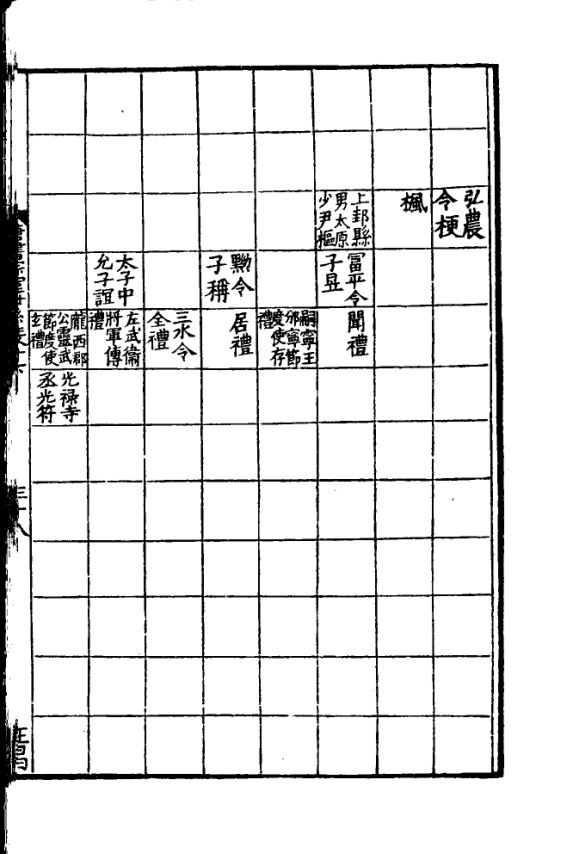 弘農
令梗
楓
上邽縣
男太原
少尹樞
冨平令
子昱
聞禮
嗣寧王
邠寧節
度使存
禮
黝令
子稱
居禮
三水令
全禮
太子中
允子誼
左武衞
將軍傳
禮
隴西郡
公靈武
節度使
玄禮
光禄寺
丞光符
三十八